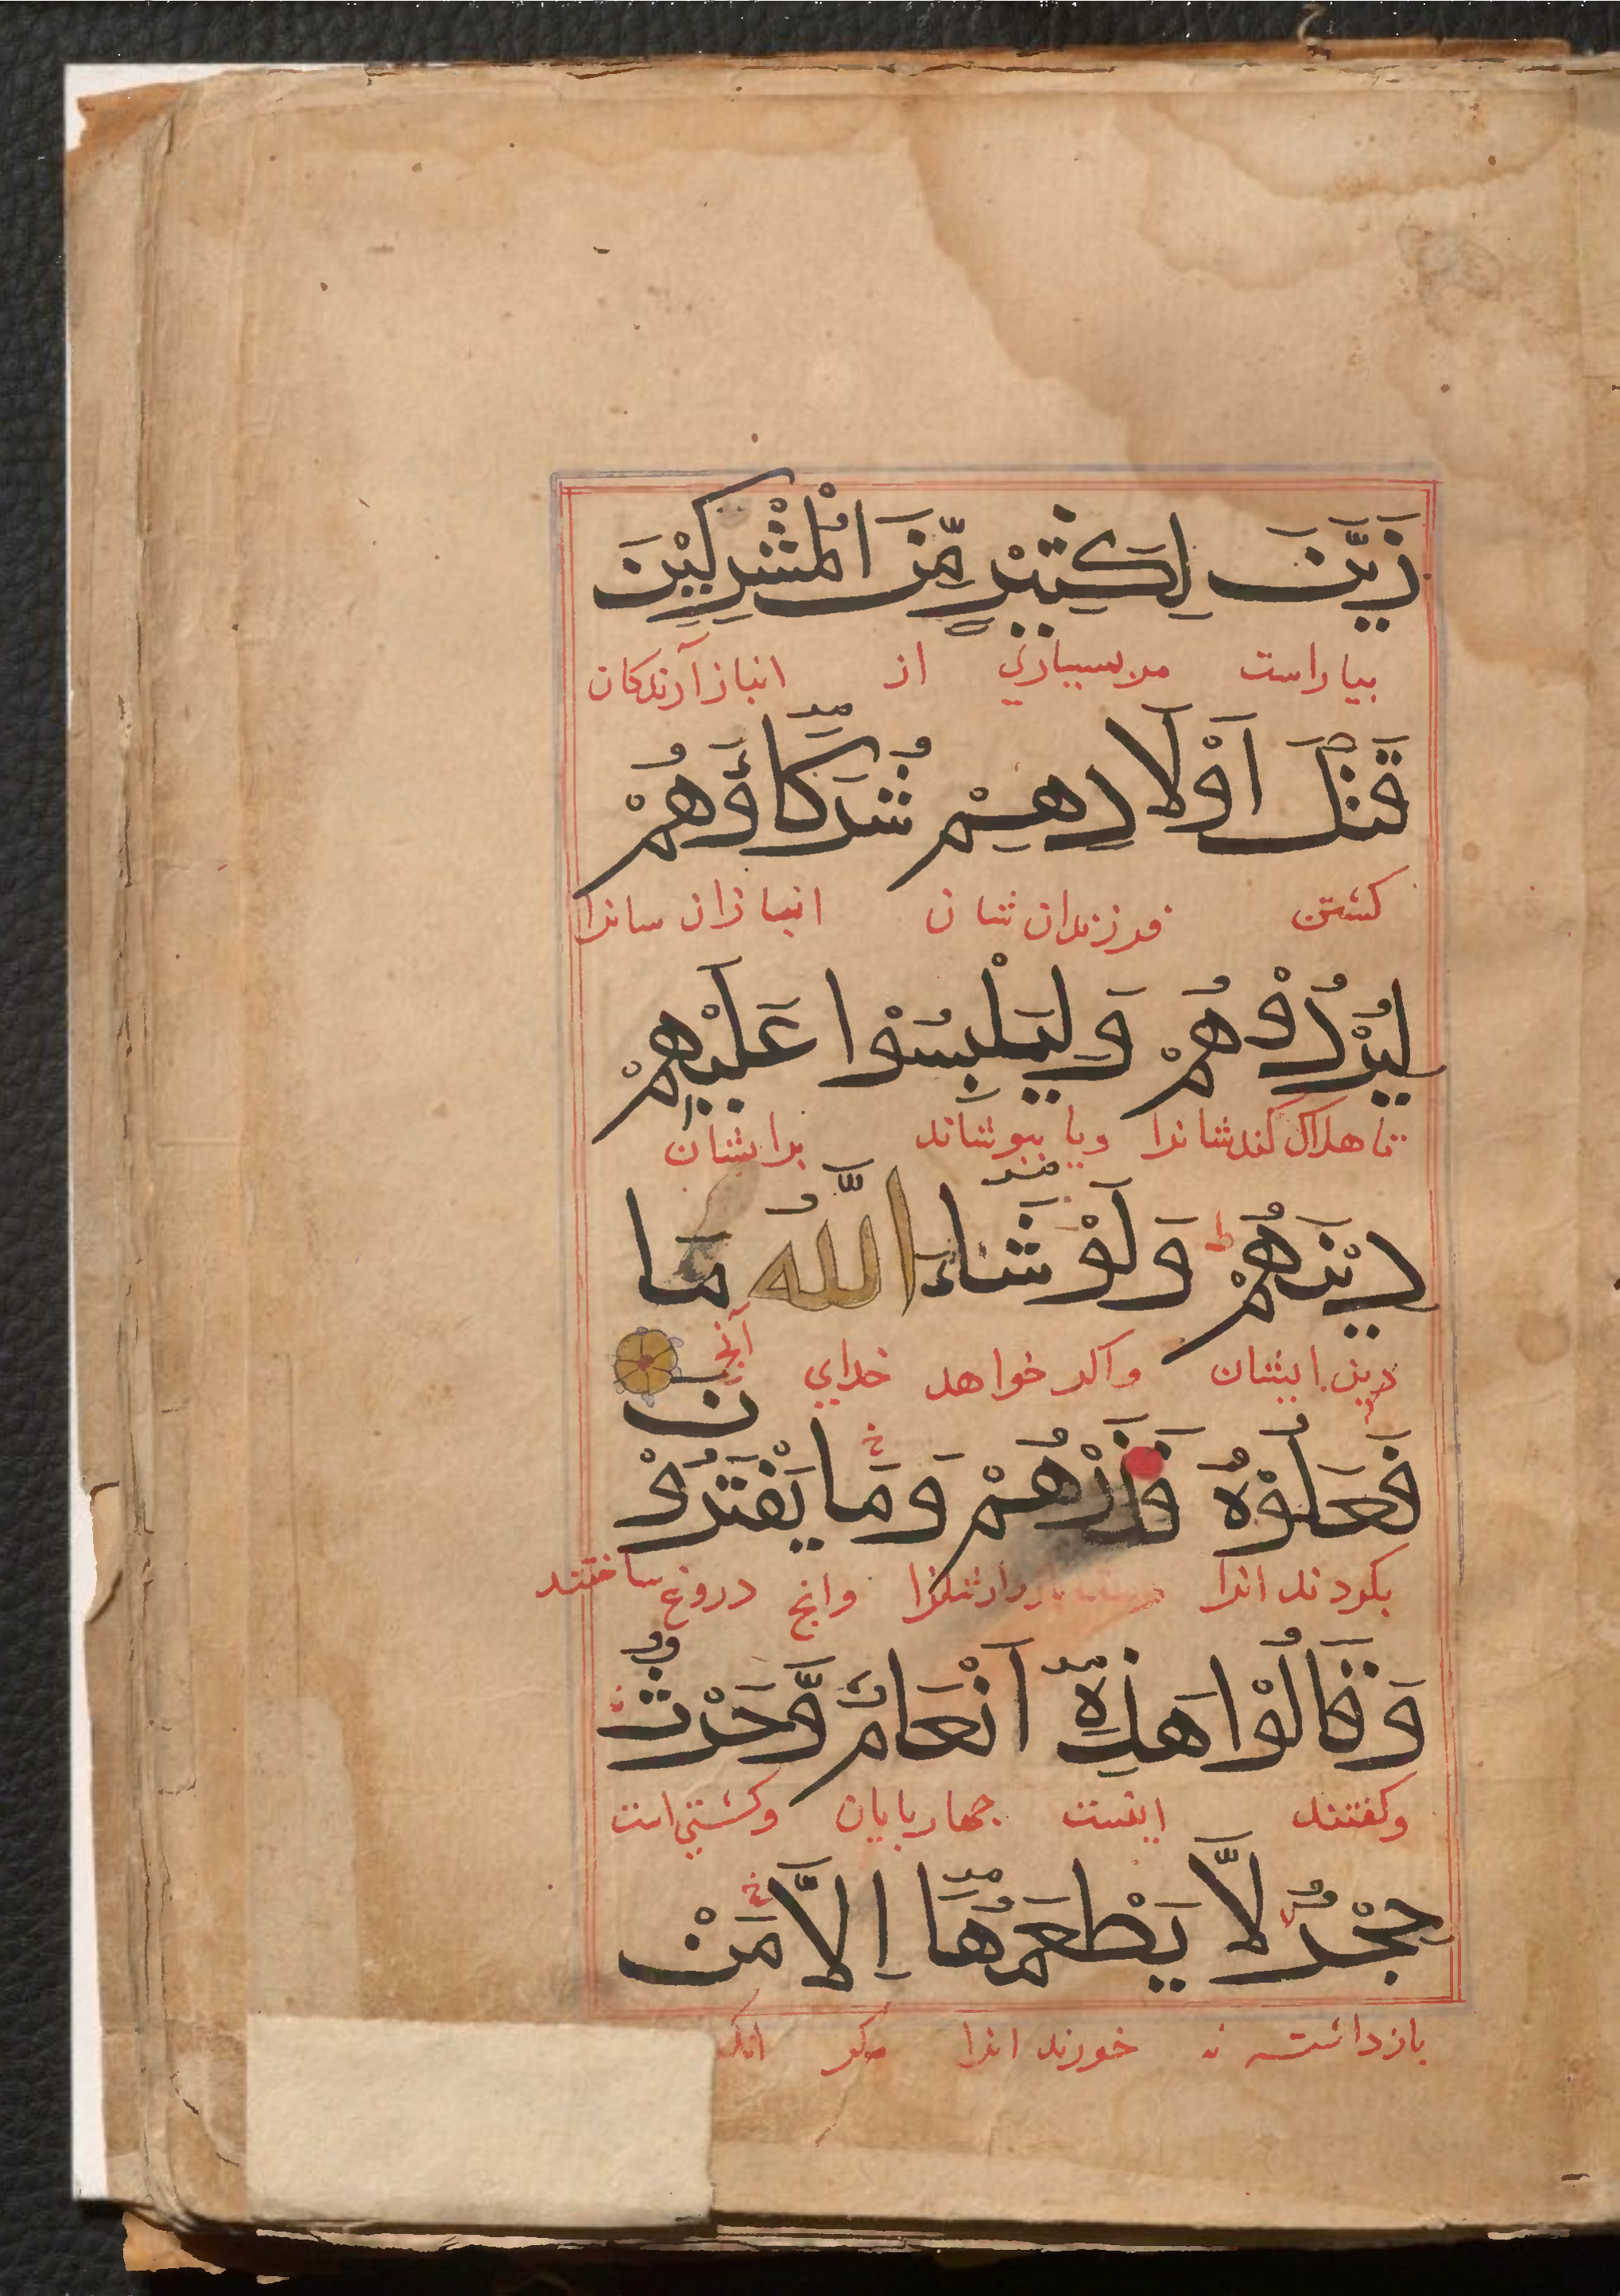 زَيَّنَ لِكَثِيْرٍ مِّنَ الْمُشْرِكِيْنَ
بیاراست مر بسیاری از انبازآرندکان
قَتْلَ اَوْلَادِهِمْ شُرَكَاؤُهُمْ
کشتن فرزندان شان انبازان سانرا
لِيُرْدُوْهُمْ وَلِيَلْبِسُوْا عَلَيْهِمْ
تا هلاک کند شانرا و یا بپوشاند بر ایشان
دِيْنَهُمْ ط وَلَوْ شَاءَ اللّٰهُ مَا
دین ایشان واکر خواهد خدای آنچ
فَعَلُوْهُ فَذَرْهُمْ وَمَا يَفْتَرُوْنَ
بکردند انرا وانچ دروغ ساختند
وَقَالُوْا هٰذِهٖ اَنْعَامٌ وَّحَرْثٌ
وکفتند اینست جهاربایان وکشتی است
حِجْرٌ لَّا يَطْعَمُهَا اِلَّا مَنْ
بازداشته نه خورند انرا مکر انک